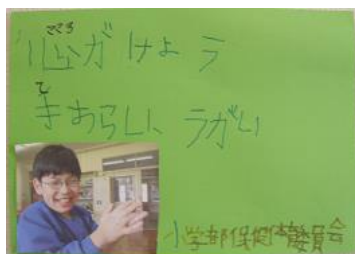 こころ
心がけよう
て
手あらい、うがい
小学部保健体育委員会